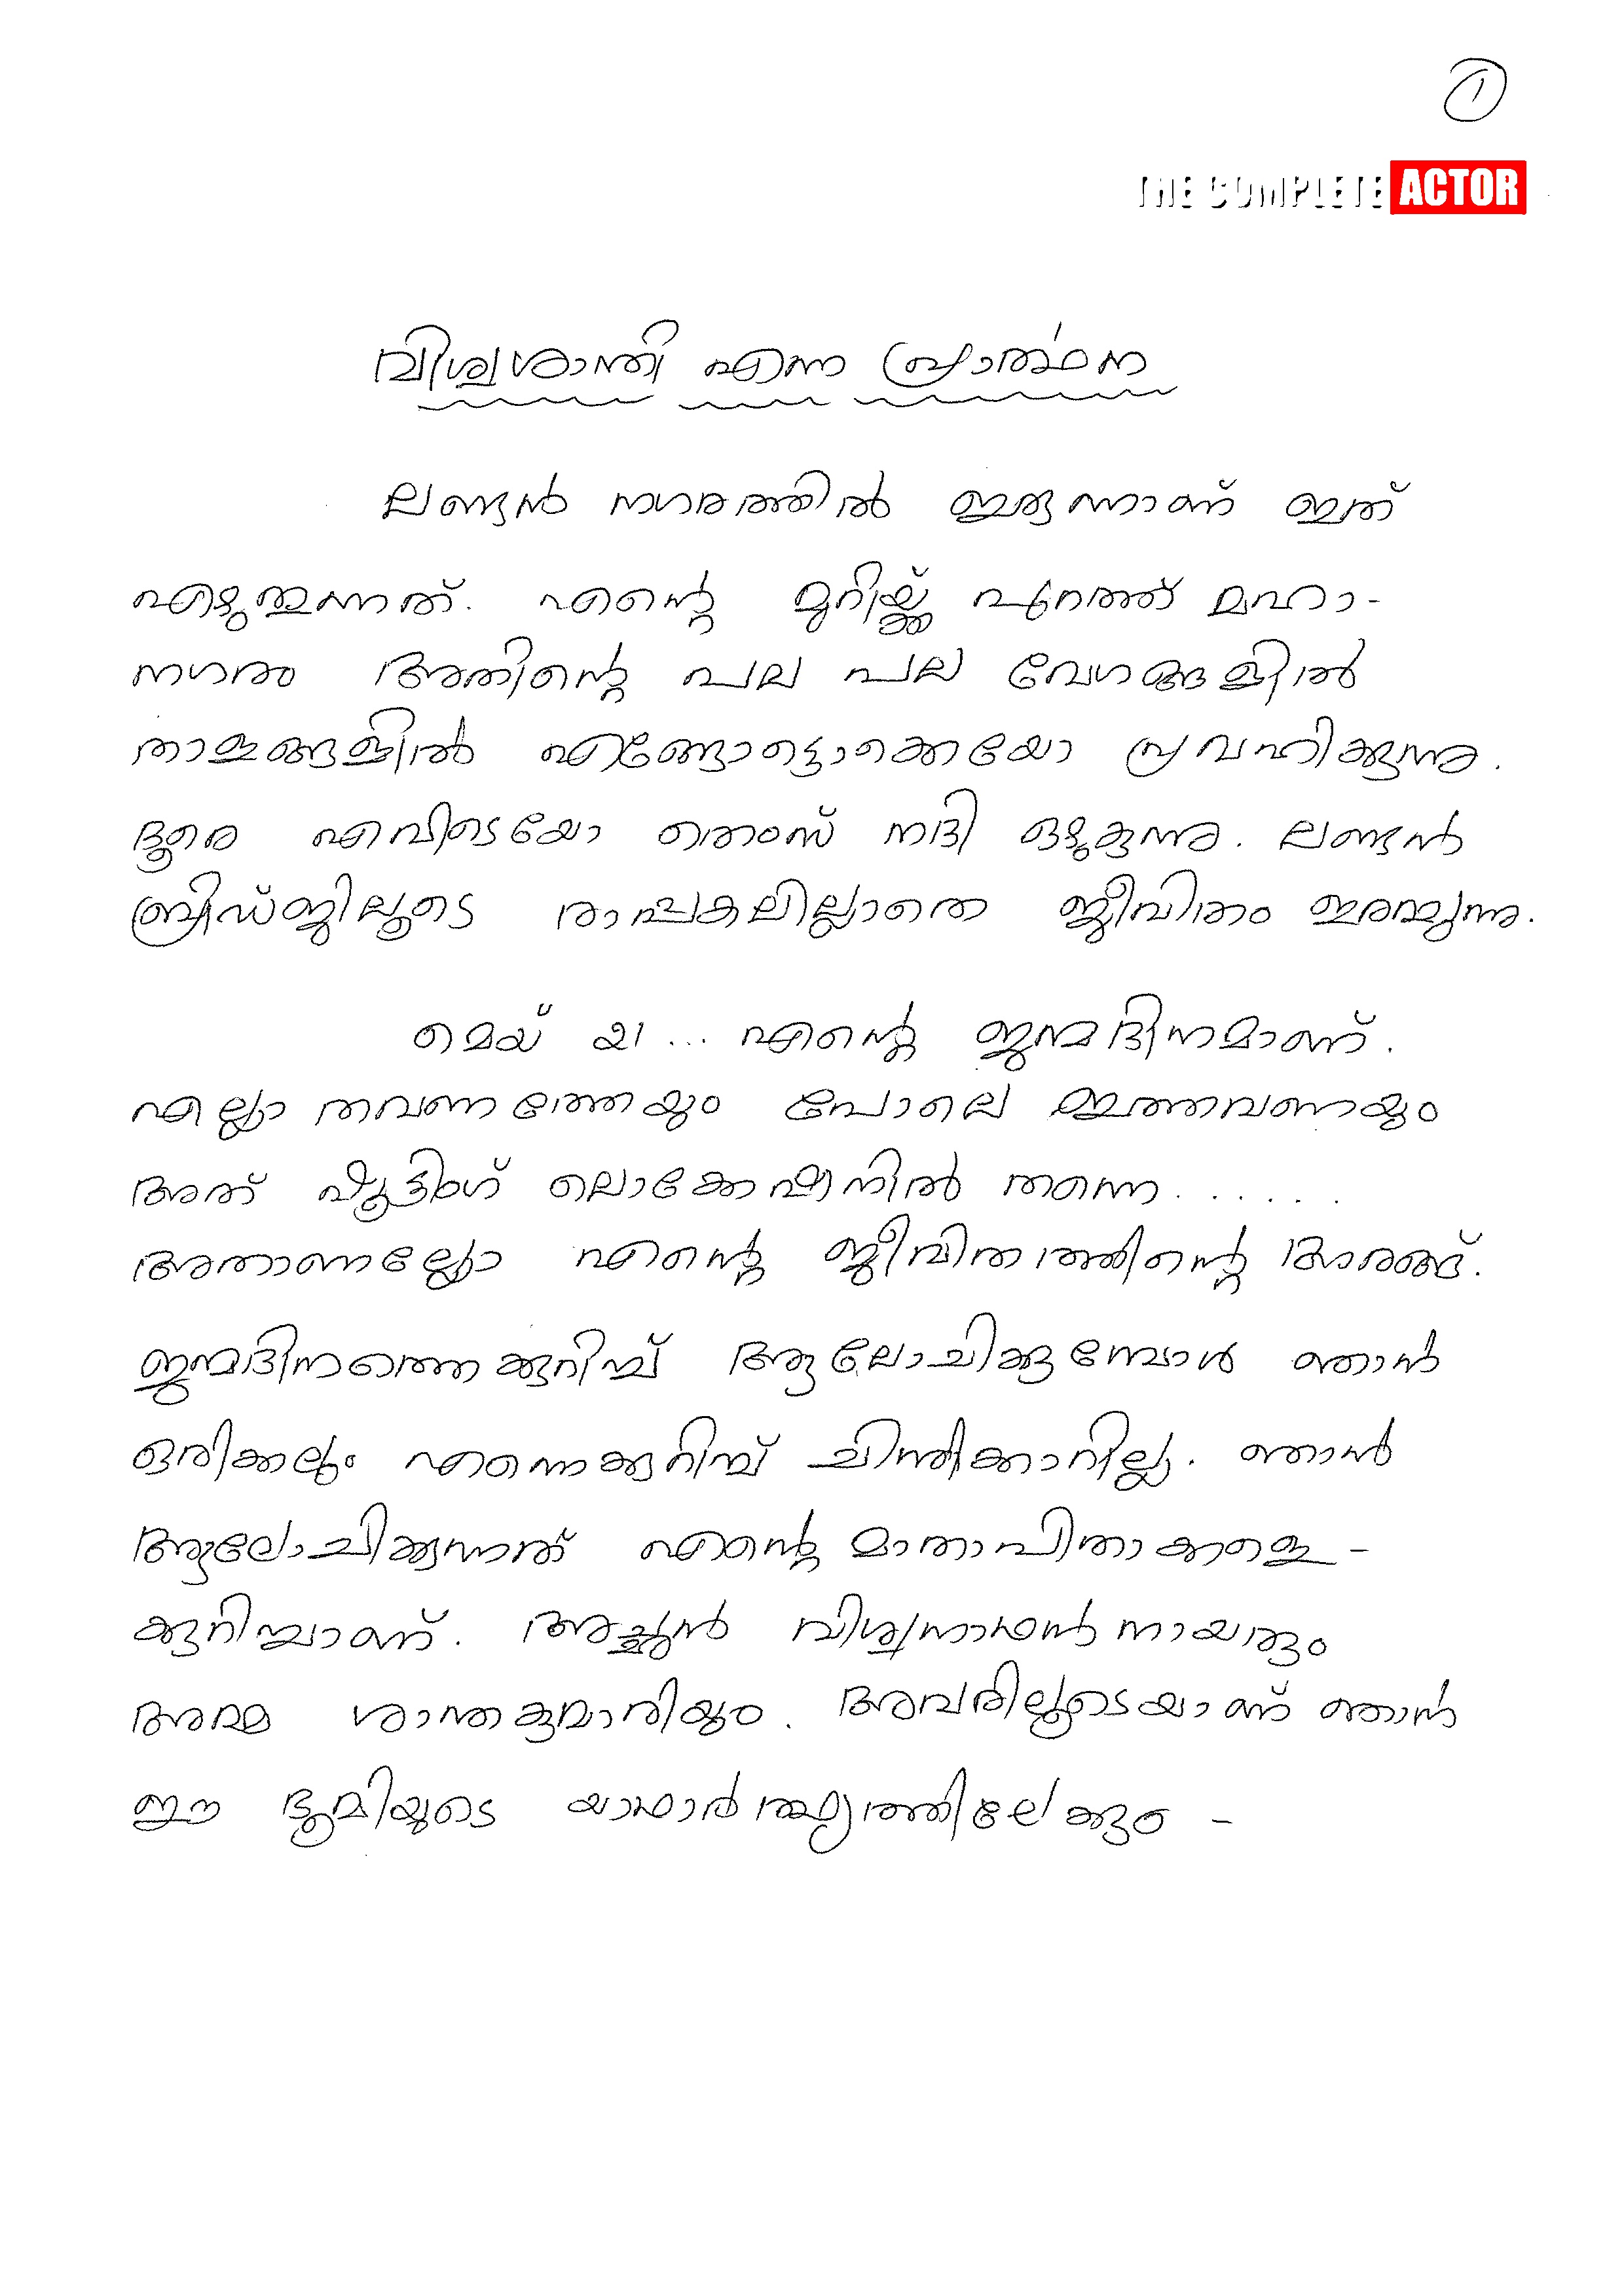 1
THE COMPLETE ACTOR
വിശ്വശാന്തി എന്ന പ്രാര്‍ത്ഥന
ലണ്ടൻ നഗരത്തിൽ ഇരുന്നാണ് ഇത്
എഴുതുന്നത്. എന്റെ മുറിയ്ക്ക് പുറത്ത് മഹാ-
നഗരം അതിന്റെ പല പല വേഗങ്ങളിൽ
താളങ്ങളിൽ എങ്ങോട്ടൊക്കെയോ പ്രവഹിക്കുന്നു.
ദൂരെ എവിടെയോ തെംസ് നദി ഒഴുകുന്നു. ലണ്ടൻ
ബ്രിഡ്ജിലൂടെ രാപ്പകലില്ലാതെ ജീവിതം ഇരമ്പുന്നു.
മെയ് 21... എന്റെ ജന്മദിനമാണ്.
എല്ലാ തവണത്തേയും പോലെ ഇത്തവണയും
അത് ഷൂട്ടിംഗ് ലൊക്കേഷനിൽ തന്നെ......
അതാണല്ലോ എന്റെ ജീവിതത്തിന്റെ അരങ്ങ്.
ജന്മദിനത്തെക്കുറിച്ച് ആലോചിക്കുമ്പോൾ ഞാൻ
ഒരിക്കലും എന്നെക്കുറിച്ച് ചിന്തിക്കാറില്ല. ഞാൻ
ആലോചിക്കുന്നത് എന്റെ മാതാപിതാക്കളെ-
ക്കുറിച്ചാണ്. അച്ഛൻ വിശ്വനാഥൻ നായരും
അമ്മ ശാന്തകുമാരിയും. അവരിലൂടെയാണ് ഞാൻ
ഈ ഭൂമിയുടെ യാഥാർത്ഥ്യത്തിലേക്കും -